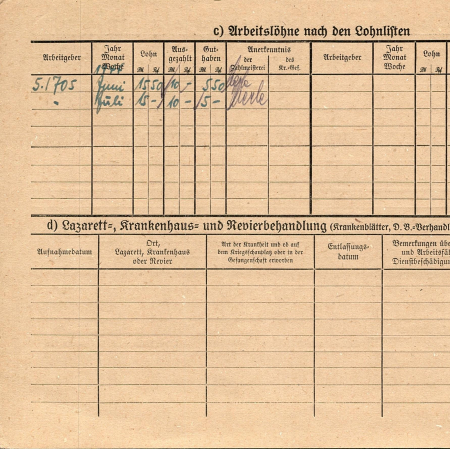 c) Arbeitslöhne nach den Lohnlisten
Arbeitgeber Jahr Monat Woche Lohn Aus-gezahlt Gut-haben Anerkenntnis Arbeitgeber Jahr Monat Woche Lohn
ℳ ₰ ℳ ₰ ℳ ₰ der Zahlmeisterei des Kr.-Gef. ℳ ₰
5./705 Juni 15 50 10 - 5 50
" Juli 15 - 10 - 5 -
d) Lazarett-, Krankenhaus- und Revierbehandlung (Krankenblätter, D. B.-Verhandl
Aufnahmedatum Ort, Lazarett, Krankenhaus oder Revier Art der Krankheit und ob auf dem Kriegsschauplatz oder in der Gefangenschaft erworben Entlassungs-datum Bemerkungen übe und Arbeitsfä Dienstbeschädigu